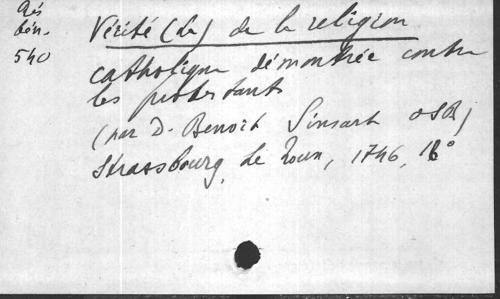 Rés
bén.
540
Vérité (La) de la religion
catholique démontrée contre
les protestants
(par D. Benoît Sinsart OSB)
Strasbourg, Le Roux, 1746, 16°